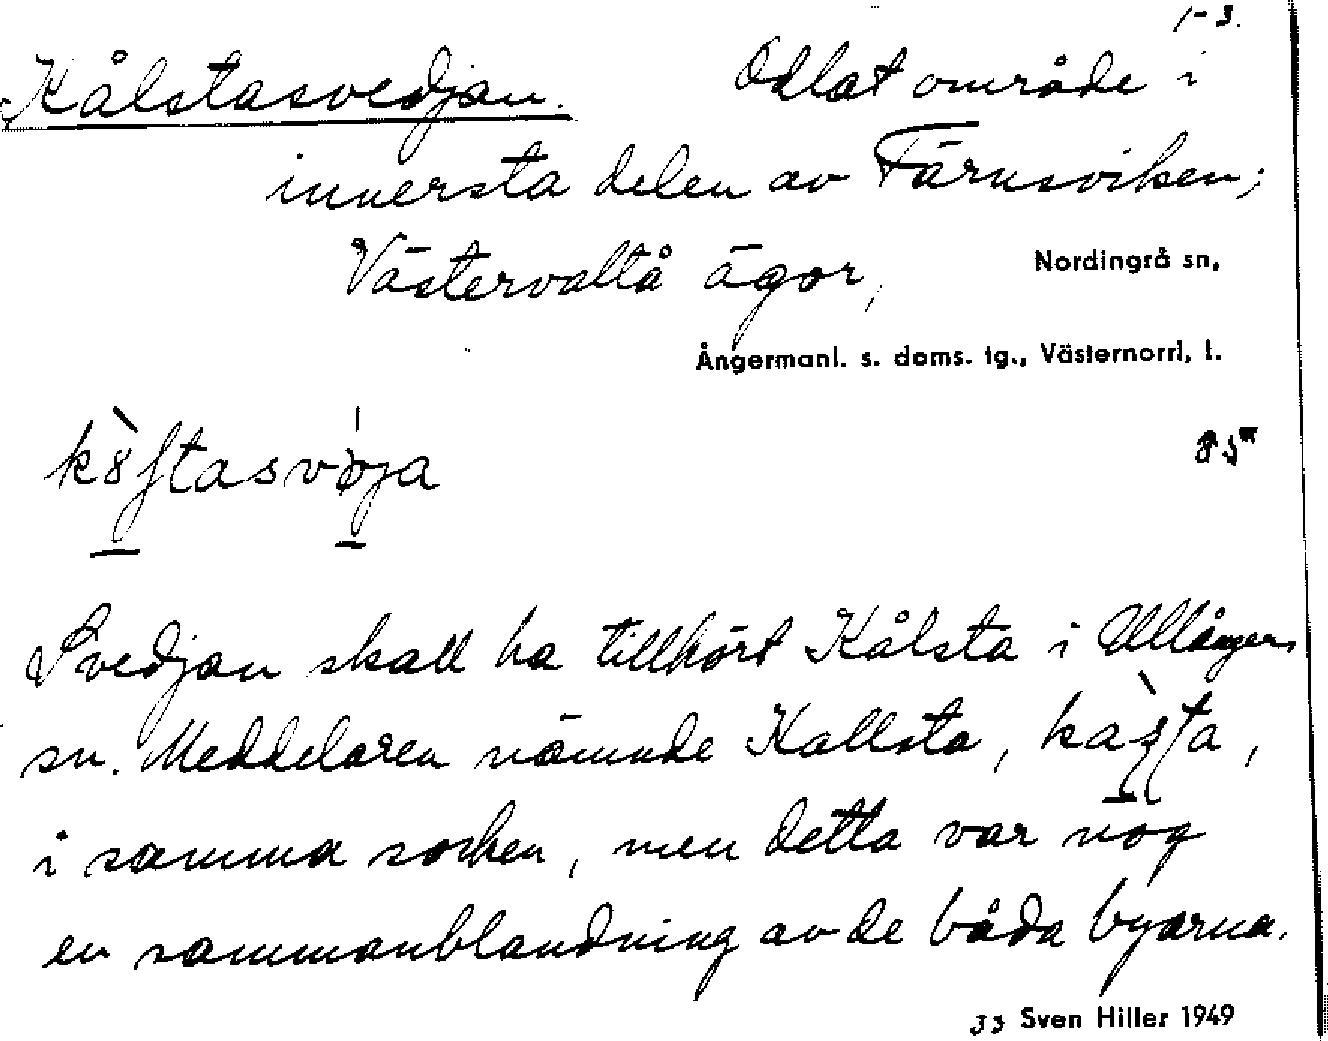 1-3.
Kålstasvedjan. Odlat område i
innersta delen av Färnsviken;
Västervaltå ägor, Nordingrå sn,
Ångermanl. s. doms. tg., Västernorrl. l.
Svedjan skall ha tillhört Kålsta i Ullångers
sn. Meddelaren nämnde Kallsta,
i samma socken, men detta var nog
en sammanblandning av de båda byarna.
Sven Hiller 1949